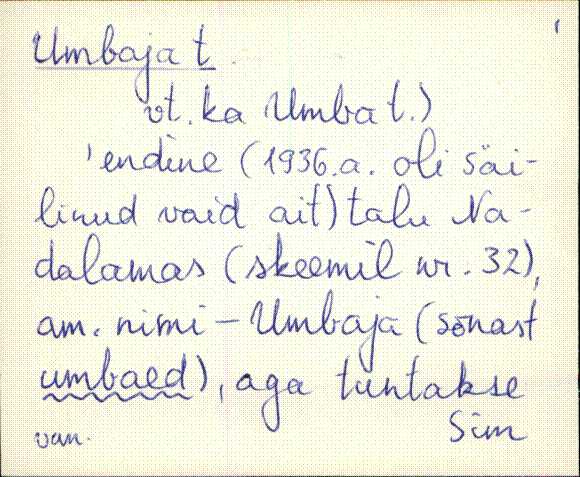 Umbaja t.
vt. ka Umba t.)
'endine (1936.a. oli säi-
linud vaid ait) talu Na-
dalamas (skeemil nr. 32),
am. nimi - Umbaja (sõnast
umbaed), aga tuntakse
van. Sim